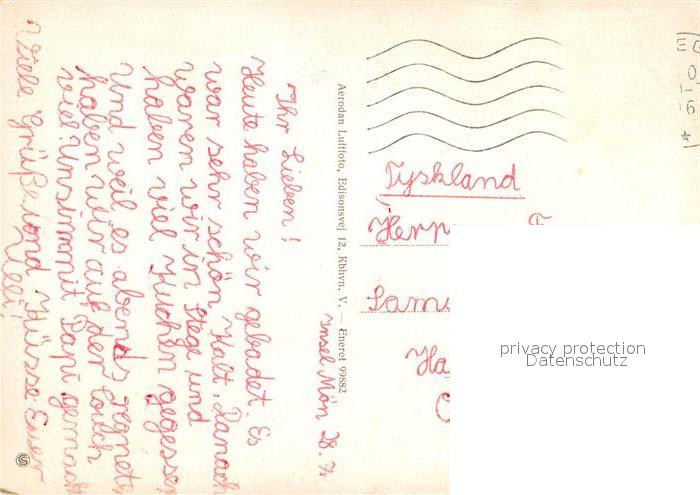 Insel Mön 28. 7.
Ihr Lieben!
Heute haben wir gebadet. Es
war sehr schön. Kalt. Danach
waren wir in Stege und
haben viel Kuchen gegessen
Und weil es abends regnet,
haben wir auf der Couch
viel Unsinn mit Papi gemacht
Viele Grüße und Küsse Euer
Ulli!
Aerodan Luftfoto, Edisonsvej 12, Kbhvn. V. — Eneret 99882
Tyskland
Herrn
privacy protection
Datenschutz